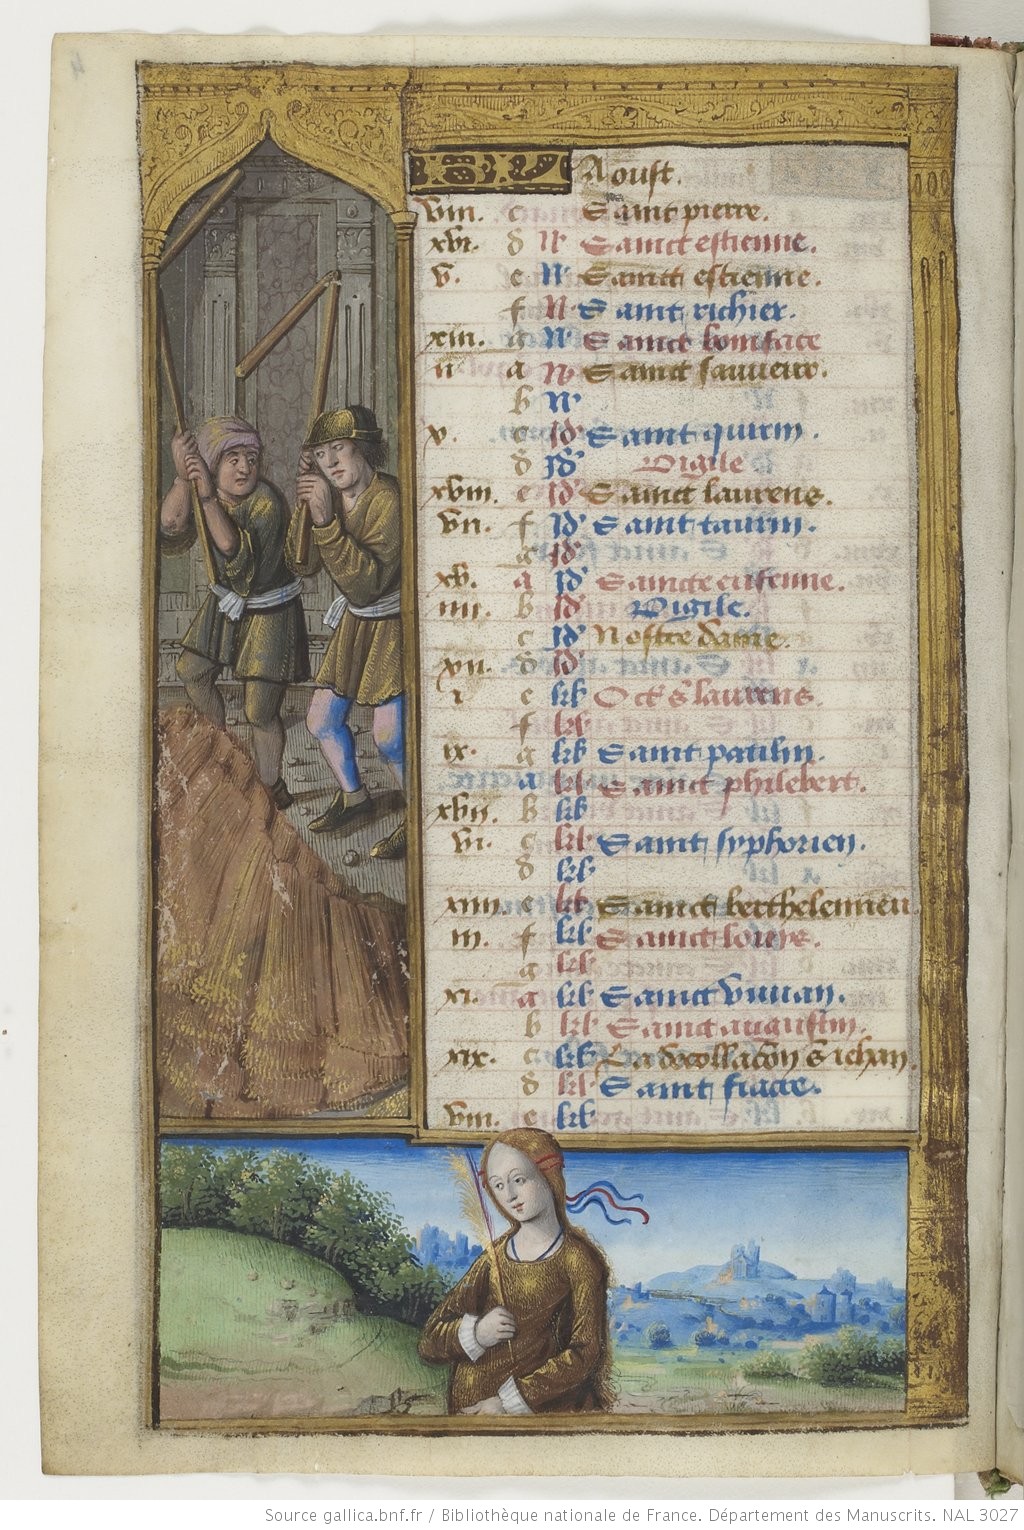 4
Aoust.
viii. c Sainct pierre.
xvi. d N Sainct estienne.
v. e N Sainct estienne.
f N Sainct richier.
xiii. g N Sainct boniface
ii a N Sainct sauveur.
b N
x. c Id Sainct quirin.
d Id Vigile
xviii. e Id Sainct laurens.
vii. f Id Sainct taurin.
g Id
xv. a Id Saincte eusenne.
iiii. b Id Vigile.
c Id Nostre dame.
xii. d Id
i e klr Oct s laurens.
f klr
ix. g klr Sainct paulin.
a klr Sainct philebert.
xvii. b klr
vi. c klr Sainct syphorien.
d klr
xiiii. e klr Sainct berthelemieu
iii. f klr Sainct louys.
g klr
xi. a klr Sainct vivian.
b klr Sainct augustin.
xix. c klr La decollacion s iehan.
d klr Sainct fiacre.
viii. e klr
Source gallica.bnf.fr / Bibliothèque nationale de France. Département des Manuscrits. NAL 3027